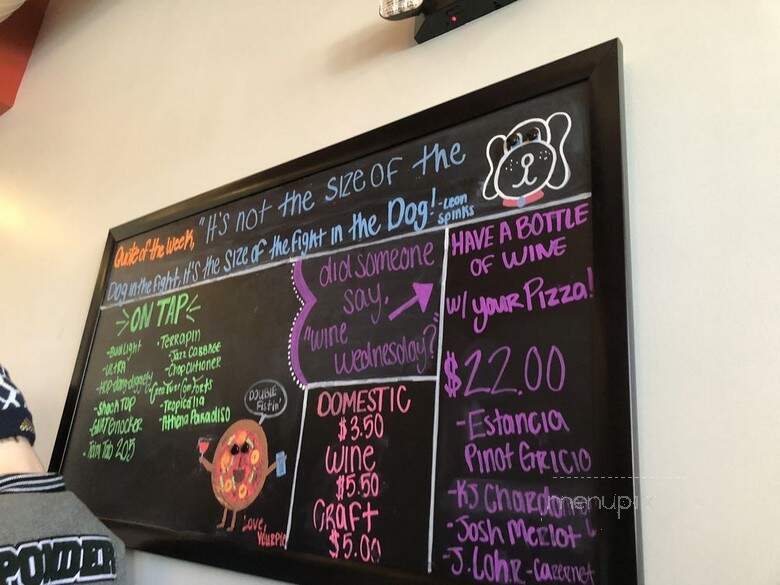 Quote of the Week, "It's not the size of the
Dog in the fight, It's the Size of the Fight in the Dog! -Leon Spinks
ON TAP
-Bud Light
-ULTRA
-Hop-dang-diggity
-Shock Top
-
- 205
-Terrapin
Jazz Cabbage
-Chopcutioner
-Tropicalia
-Athena Paradiso
DOUBLE
Fistin'
Love,
YourPie
did someone
say,
"wine
wednesday?"
DOMESTIC
$3.50
wine
$5.50
CRAFT
$5.00
HAVE A BOTTLE
OF WINE
w/ your Pizza!
$22.00
-Estancia
Pinot GRIGIO
-KJ Chardonnay
-Josh Merlot
-J. Lohr-Cabernet
menupix
PONDER